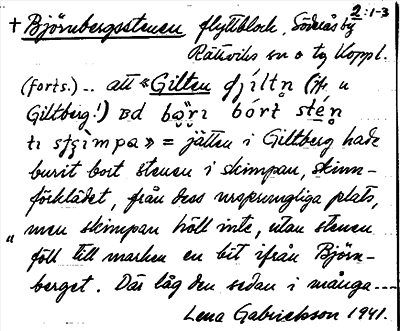 2:1-3
+ Björnbergsstenen flyttblock, Söderås by
Rättviks sn o tg Koppl.
(forts.) .. att "Gilten
Giltberg!)
= jätten i Giltberg hade
burit bort stenen i skimpan, skinn-
förklädet, från dess ursprungliga plats,
men skimpan höll inte, utan stenen
föll till marken en bit ifrån Björn-
berget. Där låg den sedan i många ---
Lena Gabrielsson 1941.